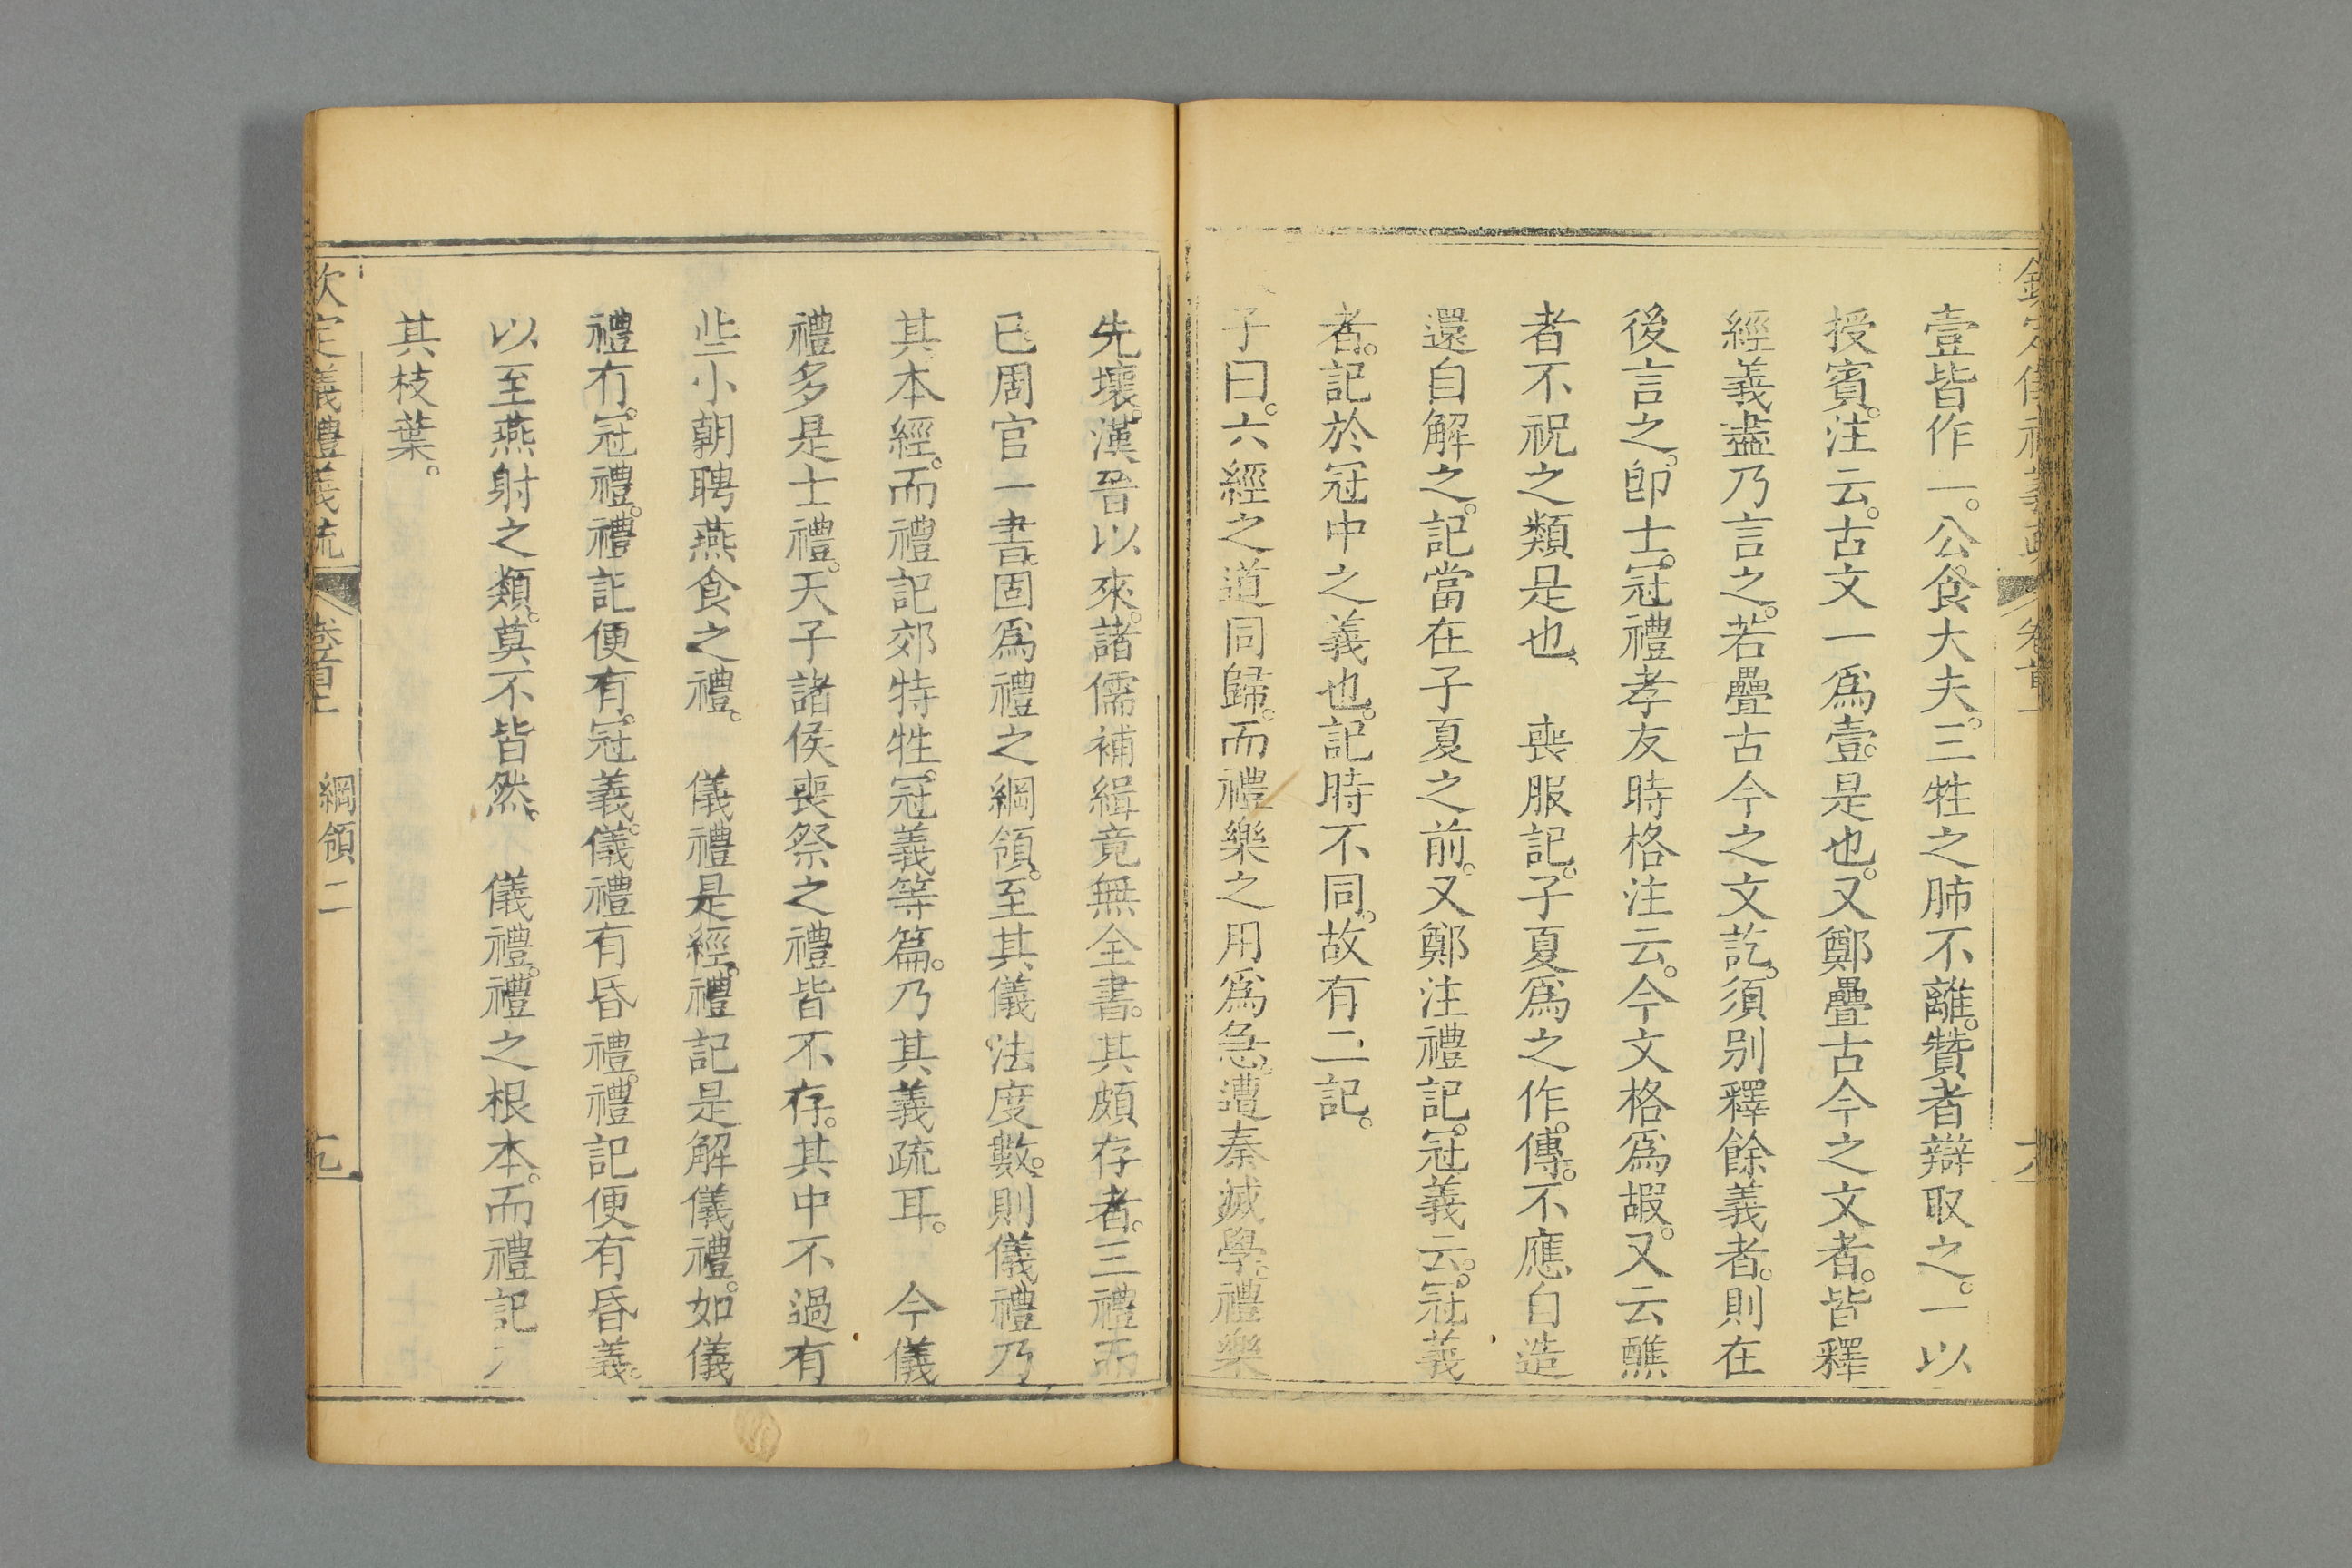 壹皆作一。公食大夫。三牲之肺不離。贊者辯取之。一以
授賓。注云。古文一爲壹。是也。又鄭疊古今之文者。皆釋
經義盡乃言之。若疊古今之文訖。須别釋餘義者。則在
後言之。卽士冠禮孝友時格注云。今文格爲嘏。又云醮
者不祝之類是也。　喪服記。子夏爲之作傳。不應自造
還自解之。記當在子夏之前。又鄭注禮記。冠義云。冠義
者。記於冠中之義也。記時不同。故有二記。
子曰。六經之道同歸。而禮樂之用爲急。遭秦滅學。禮樂
先壞。漢晉以來。諸儒補緝竟無全書。其頗存者。三禮而
已。周官一書。固爲禮之綱領。至其儀法度數。則儀禮乃
其本經。而禮記郊特牲。冠義等篇。乃其義疏耳。　今儀
禮多是士禮。天子諸侯喪祭之禮皆不存。其中不過有
些小朝聘燕食之禮。　儀禮是經。禮記是解儀禮。如儀
禮有冠禮。禮記便有冠義。儀禮有昏禮。禮記便有昏義。
以至燕射之類。莫不皆然。　儀禮。禮之根本。而禮記
其枝葉。
欽定儀禮義疏　卷首上　綱領二